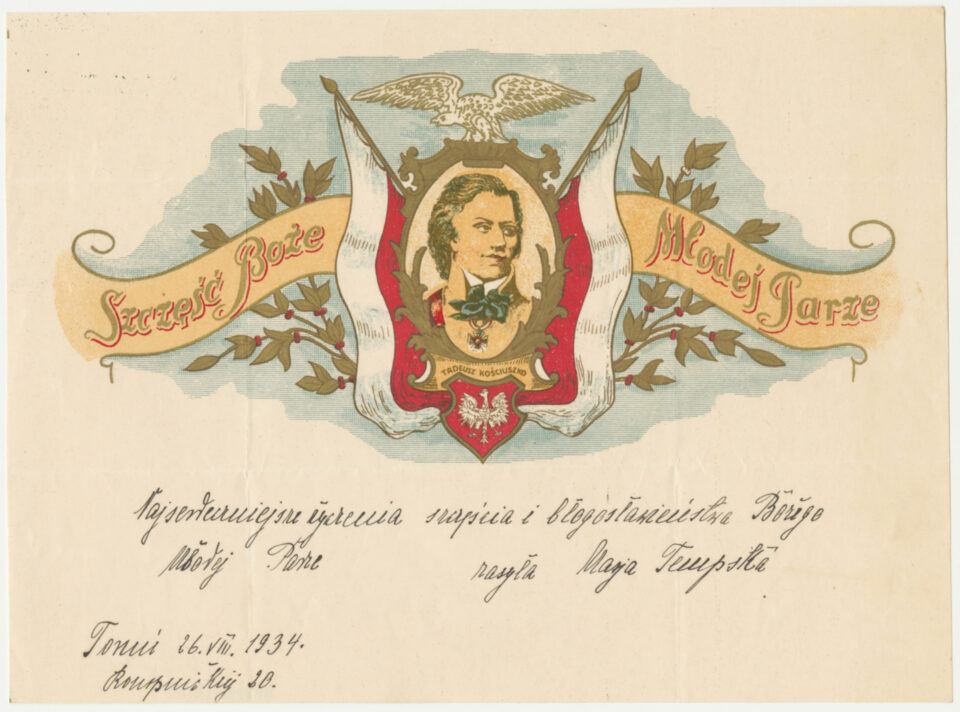 Szczęść Boże
Młodej Parze
TADEUSZ KOŚCIUSZKO
Najserdeczniejsze życzenia szczęścia i błogosławieństwa Bożego
Młodej Parze zasyła Marja Tempska
Toruń 26.VIII.1934.
Konopnickiej 20.